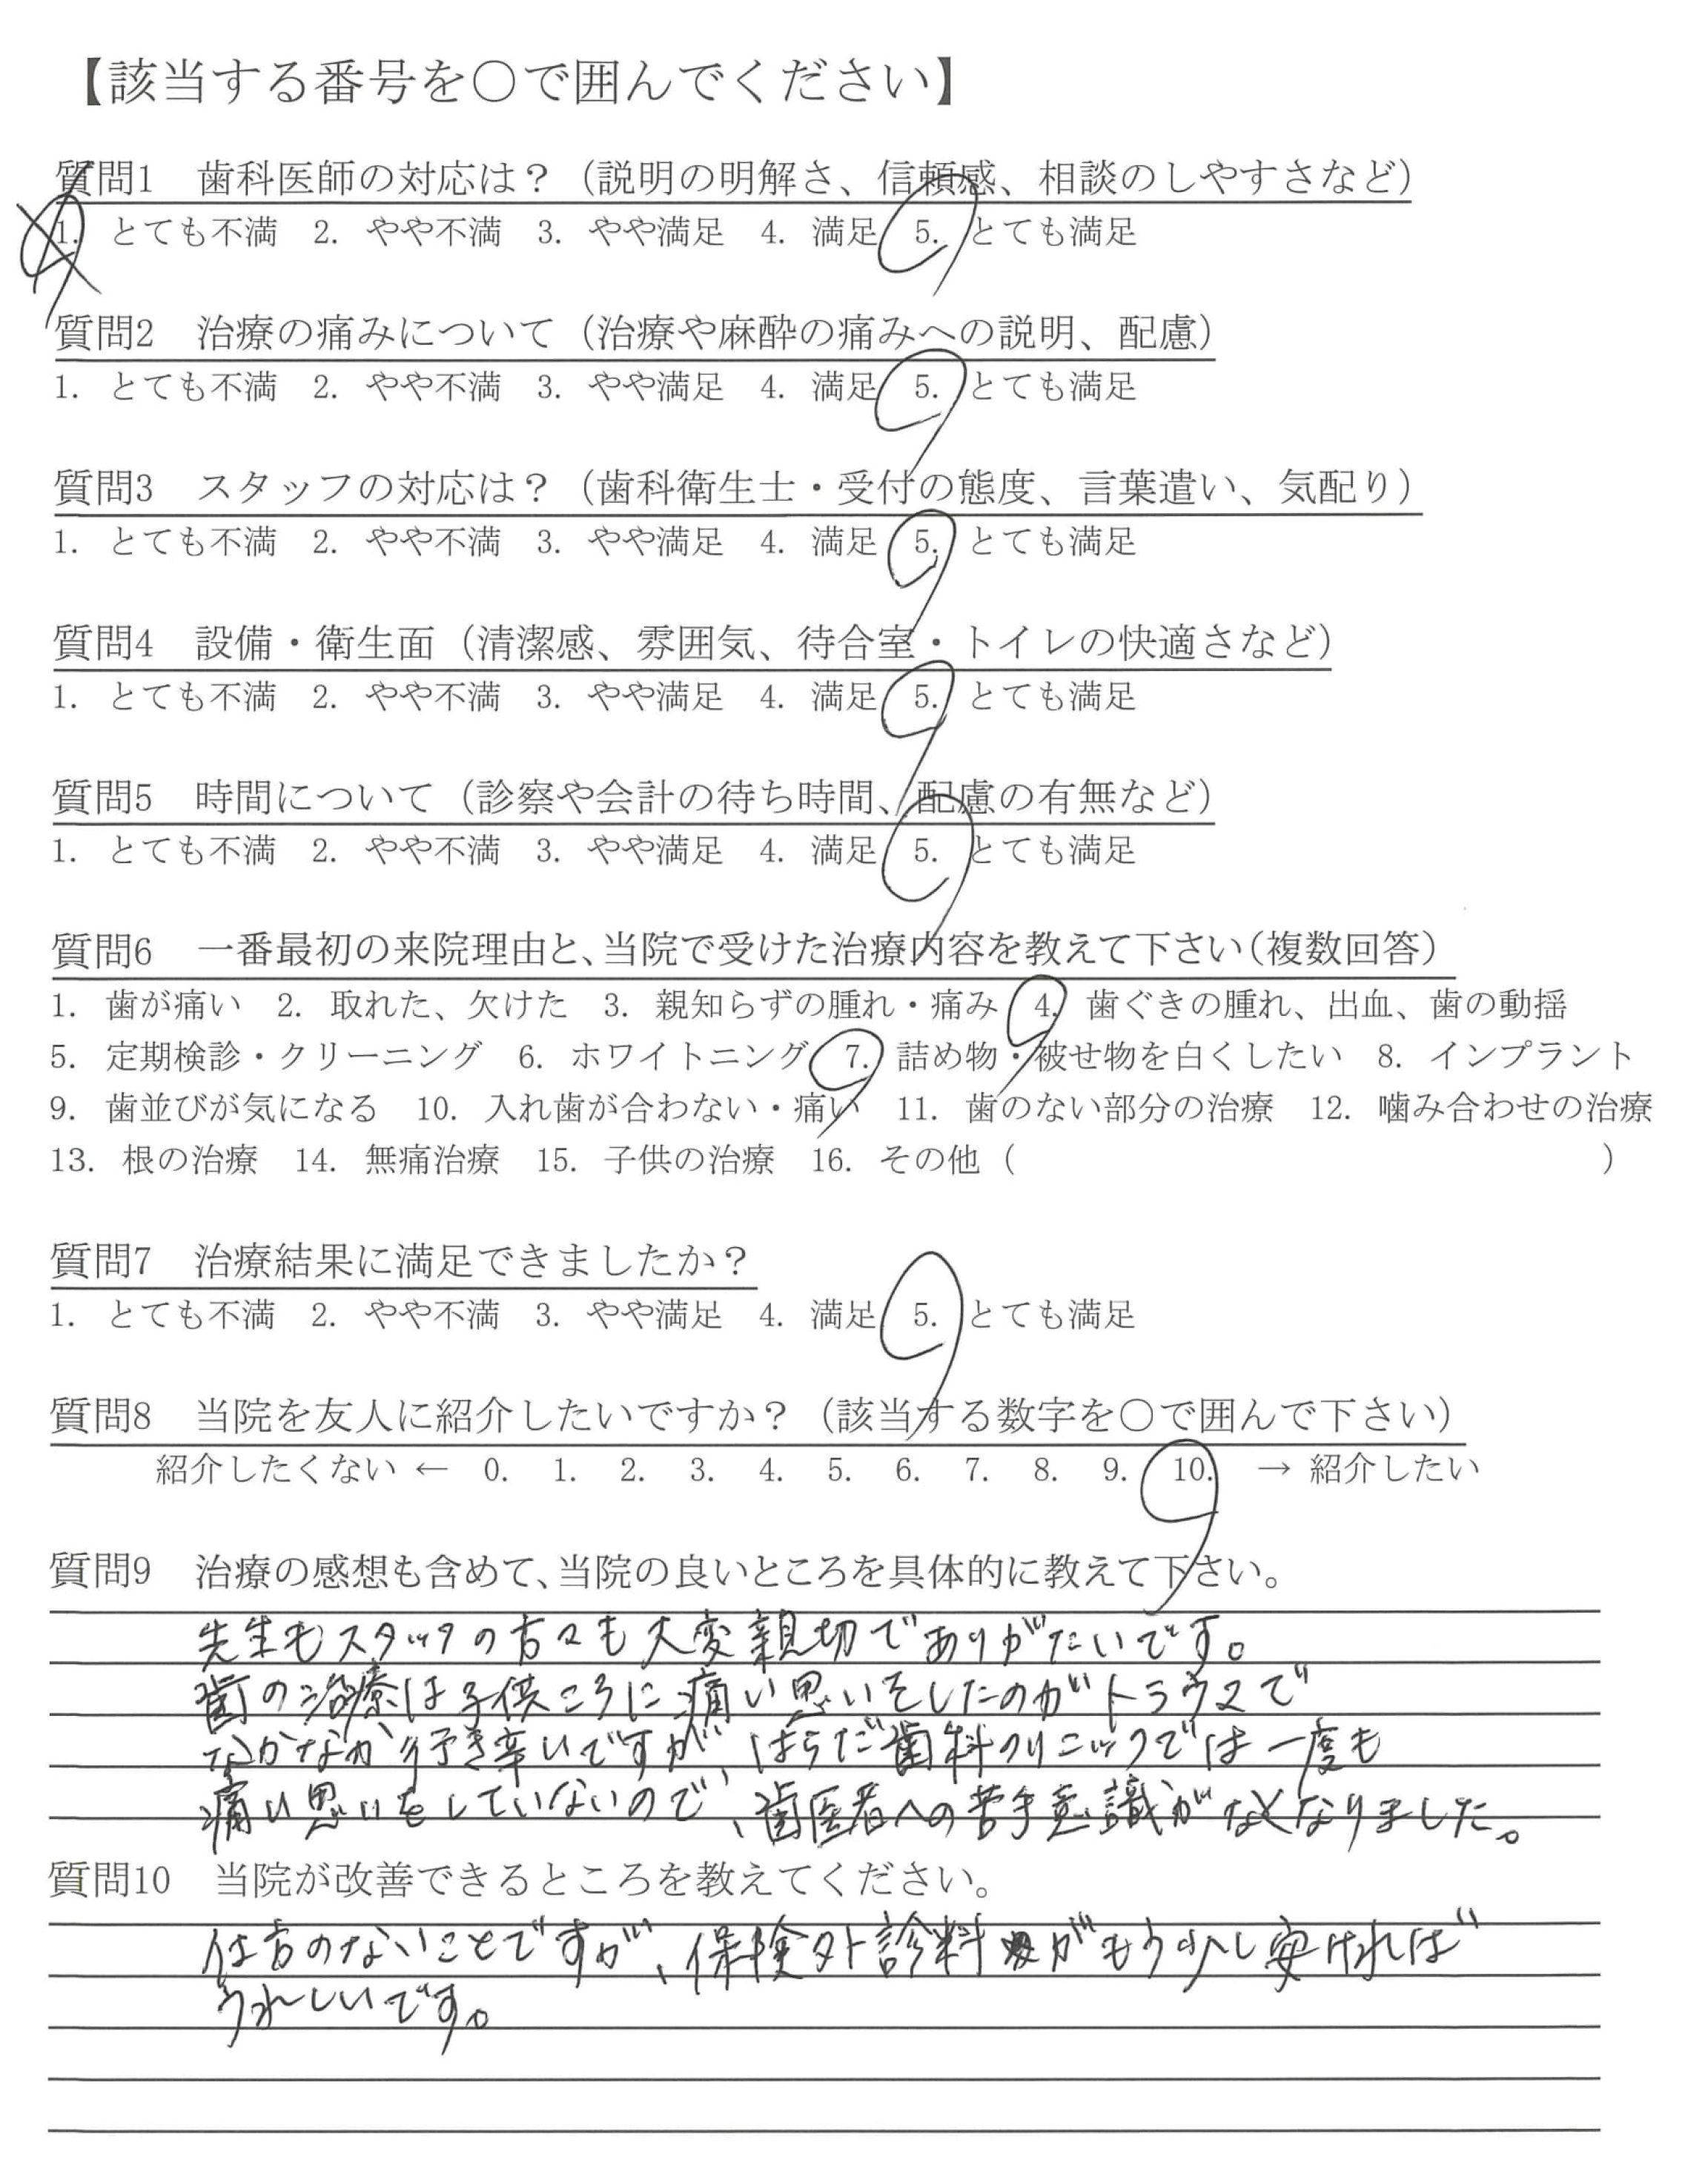 【該当する番号を○で囲んでください】
質問1　歯科医師の対応は？（説明の明解さ、信頼感、相談のしやすさなど）
1. とても不満　2. やや不満　3. やや満足　4. 満足　5. とても満足
質問2　治療の痛みについて（治療や麻酔の痛みへの説明、配慮）
1. とても不満　2. やや不満　3. やや満足　4. 満足　5. とても満足
質問3　スタッフの対応は？（歯科衛生士・受付の態度、言葉遣い、気配り）
1. とても不満　2. やや不満　3. やや満足　4. 満足　5. とても満足
質問4　設備・衛生面（清潔感、雰囲気、待合室・トイレの快適さなど）
1. とても不満　2. やや不満　3. やや満足　4. 満足　5. とても満足
質問5　時間について（診察や会計の待ち時間、配慮の有無など）
1. とても不満　2. やや不満　3. やや満足　4. 満足　5. とても満足
質問6　一番最初の来院理由と、当院で受けた治療内容を教えて下さい（複数回答）
1. 歯が痛い　2. 取れた、欠けた　3. 親知らずの腫れ・痛み　4. 歯ぐきの腫れ、出血、歯の動揺
5. 定期検診・クリーニング　6. ホワイトニング　7. 詰め物・被せ物を白くしたい　8. インプラント
9. 歯並びが気になる　10. 入れ歯が合わない・痛い　11. 歯のない部分の治療　12. 噛み合わせの治療
13. 根の治療　14. 無痛治療　15. 子供の治療　16. その他（　　　　　　　　　　）
質問7　治療結果に満足できましたか？
1. とても不満　2. やや不満　3. やや満足　4. 満足　5. とても満足
質問8　当院を友人に紹介したいですか？（該当する数字を○で囲んで下さい）
紹介したくない ← 0. 1. 2. 3. 4. 5. 6. 7. 8. 9. 10. → 紹介したい
質問9　治療の感想も含めて、当院の良いところを具体的に教えて下さい。
先生もスタッフの方々も大変親切でありがたいです。
歯の治療は子供ころに痛い思いをしたのがトラウマで
なかなか行き辛いですが、はらだ歯科クリニックでは一度も
痛い思いをしていないので、歯医者への苦手意識がなくなりました。
質問10　当院が改善できるところを教えてください。
仕方のないことですが、保険外診料がもう少し安ければ
うれしいです。